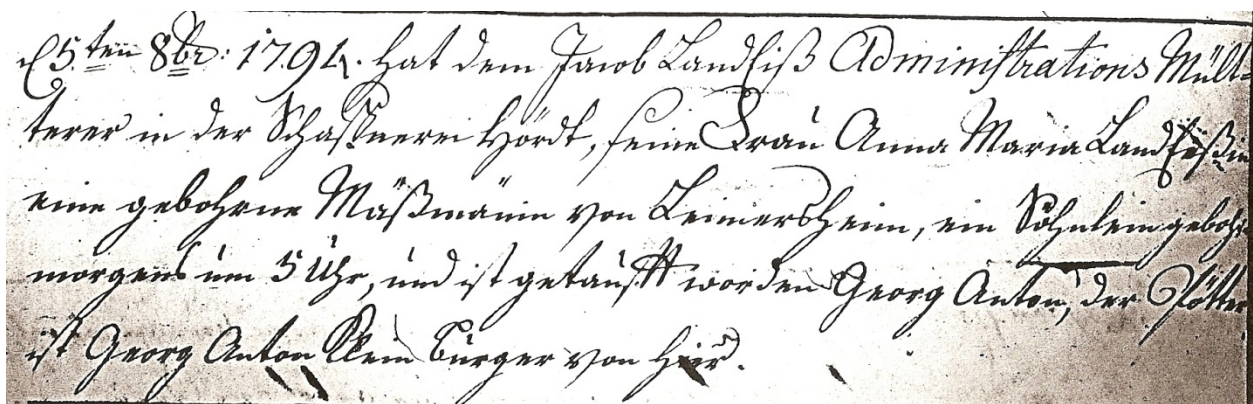 d 5ten 8br: 1791. hat dem Jacob Landfiß Administrations Mült-
terer in der Schaffnerei Hördt, seine Frau Anna Maria Landfößin
eine gebohrne Mäßmänin von Leimersheim, ein Söhnlein gebohr
morgens um 5 Uhr, und ist getaufft worden Georg Anton, der Pfötter
ist Georg Anton Klein Bürger von hier.